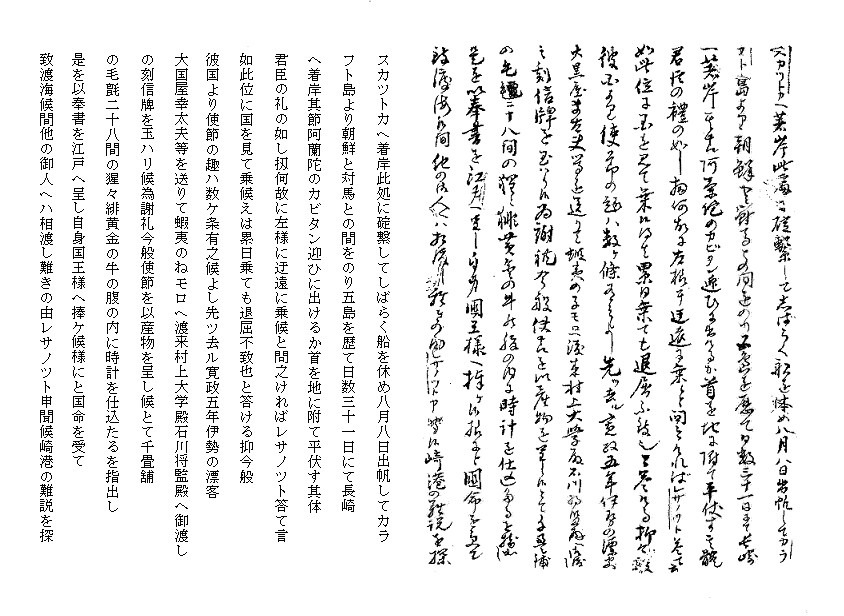 スカツトカへ着岸此処に碇繋してしばらく船を休め八月八日出帆してカラ
フト島より朝鮮と対馬との間をのり五島を歴て日数三十一日にて長崎
へ着岸其節阿蘭陀のカビタン迎ひに出けるか首を地に附て平伏す其体
君臣の礼の如し扨何故に左様に迂遠に乗候と問之ければレサノツト答て言
如此位に国を見て乗候えは累日乗ても退屈不致也と答ける抑今般
彼国より使節の趣ハ数ケ条有之候よし先ツ去ル寛政五年伊勢の漂客
大国屋幸太夫等を送りて蝦夷のねモロへ渡来村上大学殿石川将監殿へ御渡し
の刻信牌を玉ハリ候為謝礼今般使節を以産物を呈し候とて千畳舗
の毛氈二十八間の猩々緋黄金の牛の腹の内に時計を仕込たるを指出し
是を以奉書を江戸へ呈し自身国王様へ捧ケ候様にと国命を受て
致渡海候間他の御人へハ相渡し難きの由レサノツト申聞候崎港の難説を探
スカツトカへ着岸此処に碇繋してしばらく船を休め八月八日出帆してカラ
フト島より朝鮮と対馬との間をのり五島を歴て日数三十一日にて長崎
へ着岸其節阿蘭陀のカビタン迎ひに出けるか首を地に附て平伏す其体
君臣の礼の如し扨何故に左様に迂遠に乗候と問之ければレサノツト答て言
如此位に国を見て乗候えは累日乗ても退屈不致也と答ける抑今般
彼国より使節の趣ハ数ケ条有之候よし先ツ去ル寛政五年伊勢の漂客
大国屋幸太夫等を送りて蝦夷のねモロへ渡来村上大学殿石川将監殿へ御渡し
の刻信牌を玉ハリ候為謝礼今般使節を以産物を呈し候とて千畳舗
の毛氈二十八間の猩々緋黄金の牛の腹の内に時計を仕込たるを指出し
是を以奉書を江戸へ呈し自身国王様へ捧ケ候様にと国命を受て
致渡海候間他の御人へハ相渡し難きの由レサノツト申聞候崎港の難説を探